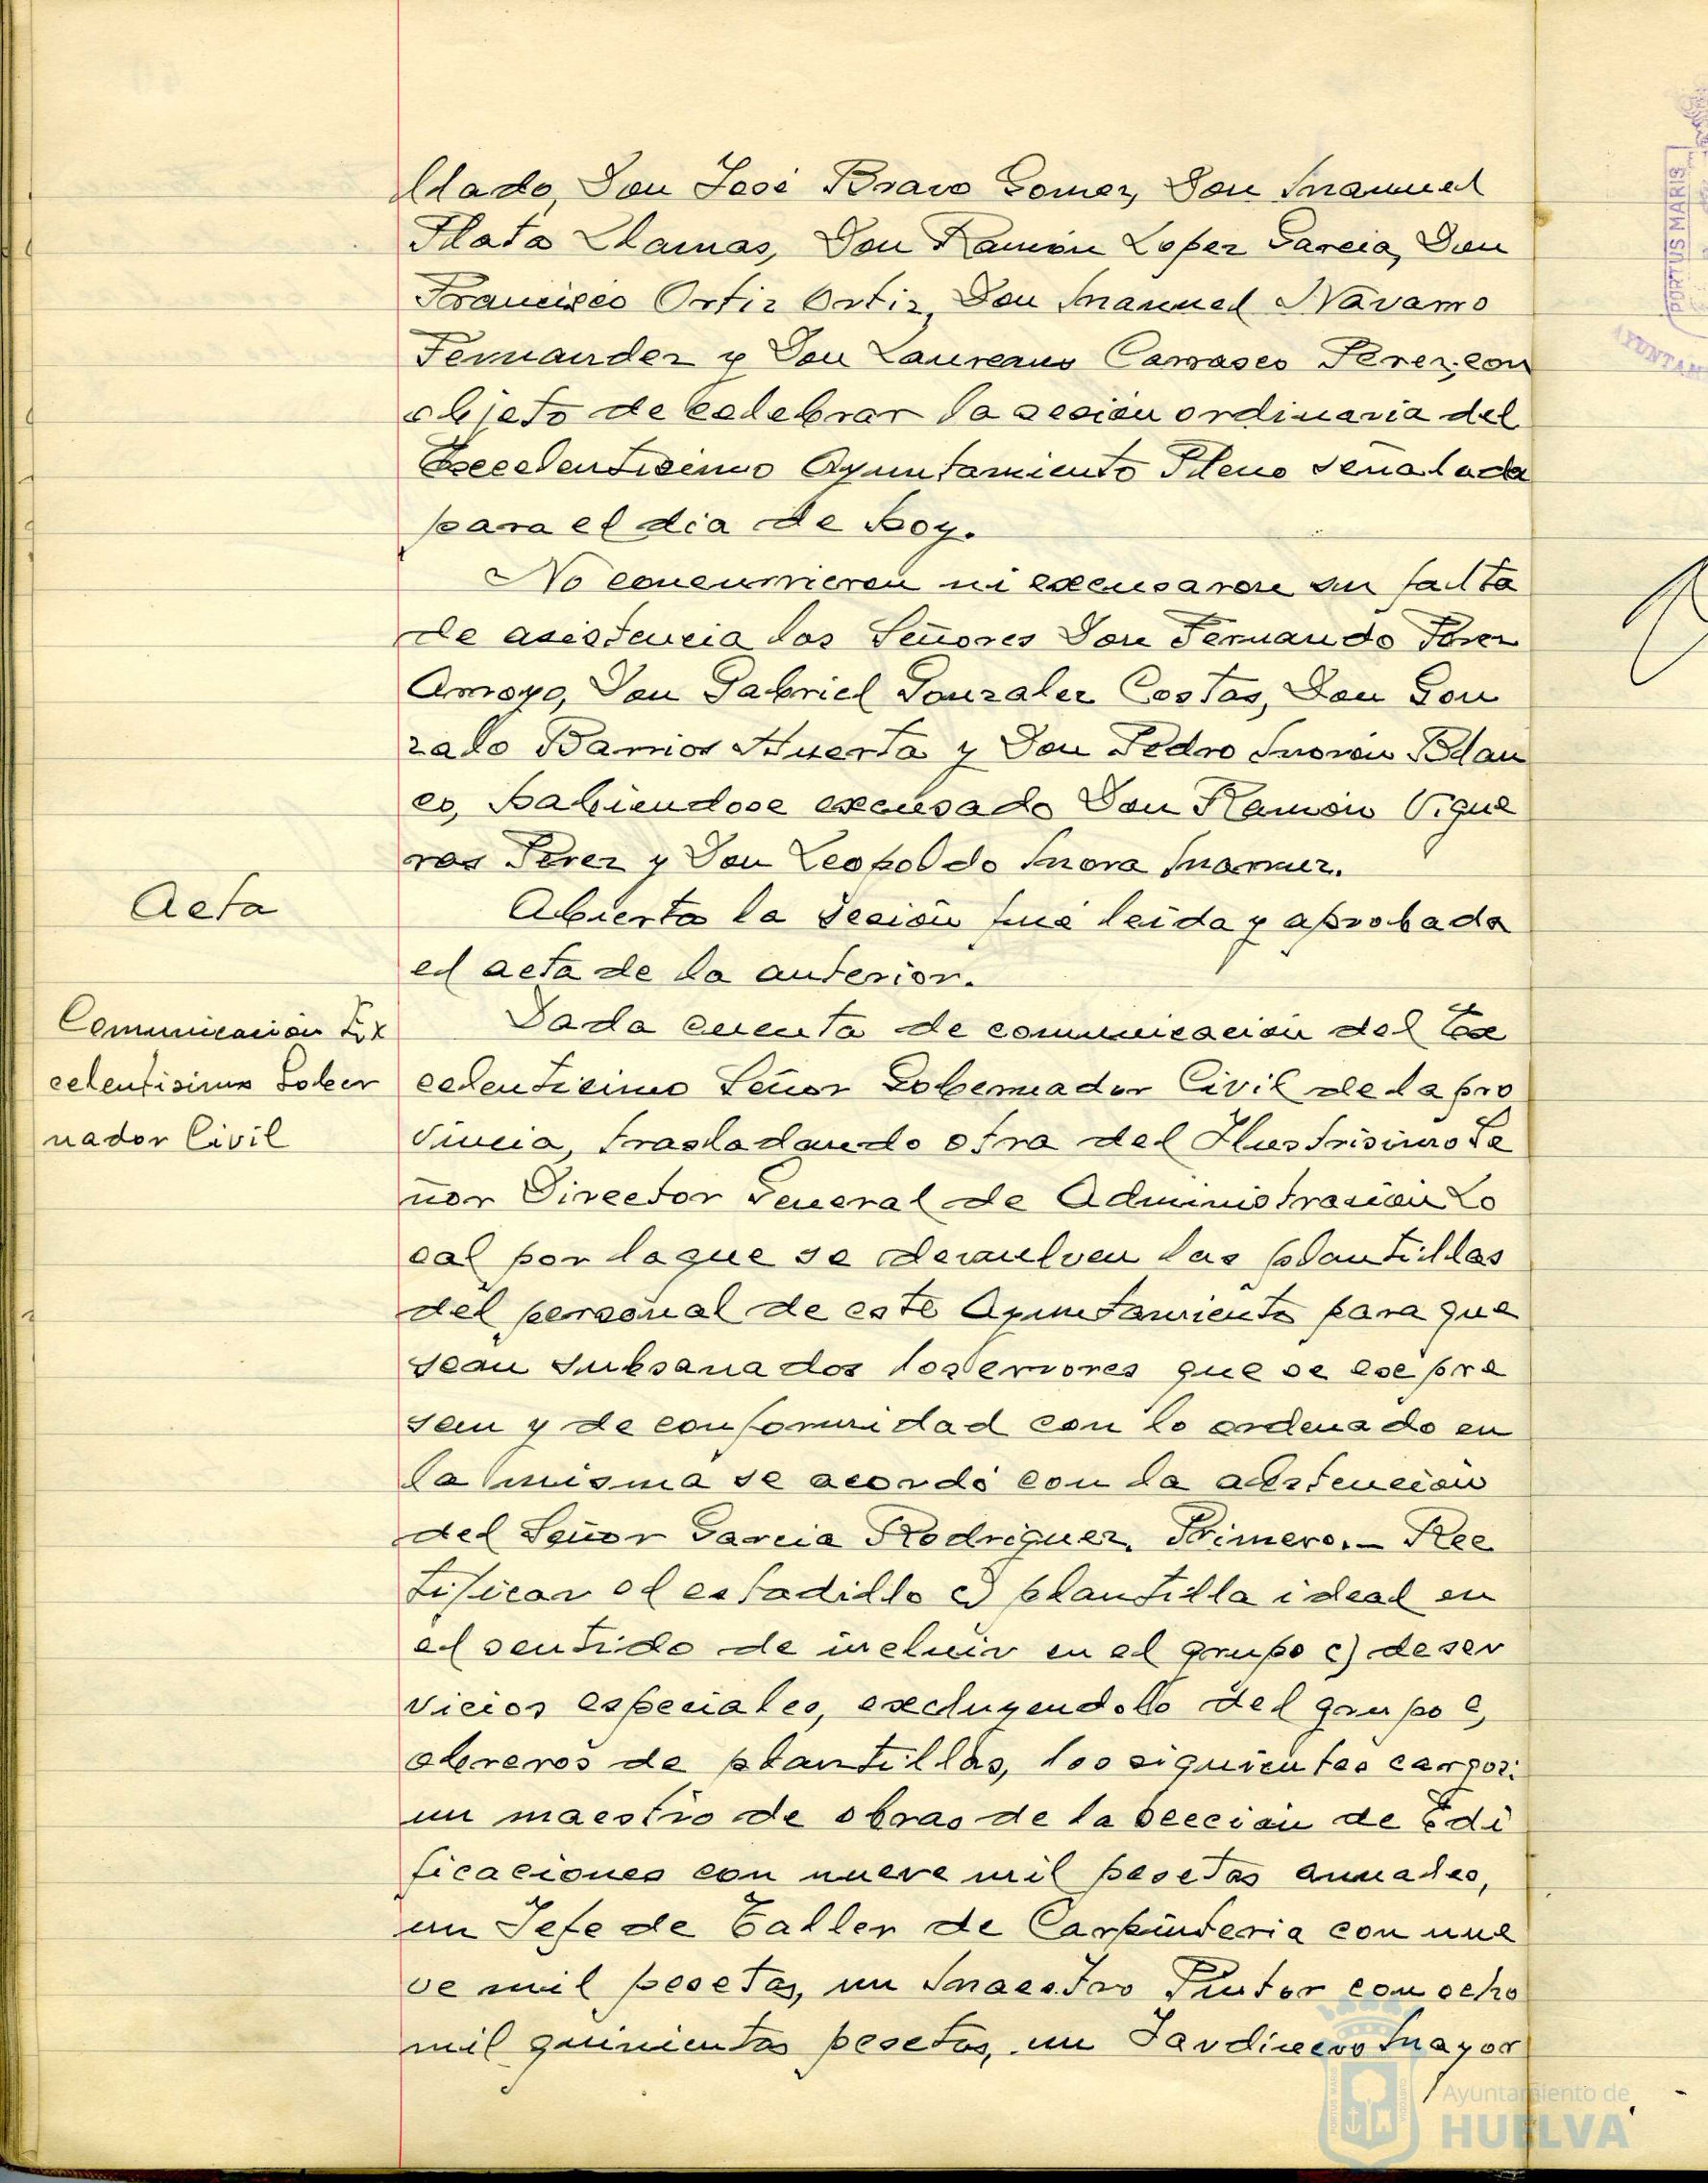 llado, Don José Bravo Gomez, Don Manuel
Plata Llamas, Don Ramón Lopez Garcia, Don
Francisco Ortiz Ortiz, Don Manuel Navarro
Fernandez y Don Laureano Carrasco Perez; con
objeto de celebrar la sesión ordinaria del
Excelentisimo Ayuntamiento Pleno señalada
para el dia de hoy.
No concurrieron ni excusaron su falta
de asistencia los Señores Don Fernando Perez
Arroyo, Don Gabriel Gonzalez Costas, Don Gon
zalo Barrios Huerta y Don Pedro Morón Blan
co, habiendose excusado Don Ramón Vigue
ras Perez y Don Leopoldo Mora
Acta
Abierta la sesión fué leida y aprobada
el acta de la anterior.
Comunicación Ex
celentisimo Gober
nador Civil
Dada cuenta de comunicación del Ex
celentisimo Señor Gobernador Civil de la pro
vincia, trasladando otra del Ilustrisimo Se
ñor Director General de Administración Lo
cal por la que se devuelven las plantillas
del personal de este Ayuntamiento para que
sean subsanados los errores que se expre
san y de conformidad con lo ordenado en
la misma se acordó con la abstención
del Señor Garcia Rodriguez. Primero.- Rec
tificar el estadillo c) plantilla ideal en
el sentido de incluir en el grupo c) de ser
vicios especiales, excluyendolo del grupo e,
obreros de plantillas, los siguientes cargos:
un maestro de obras de la sección de Edi
ficaciones con nueve mil pesetas anuales,
un Jefe de Taller de Carpinteria con nue
ve mil pesetas, un Maestro Pintor con ocho
mil quinientas pesetas, un Jardinero Mayor
PORTUS MARIS
AYUNTAM
Ayuntamiento de
HUELVA